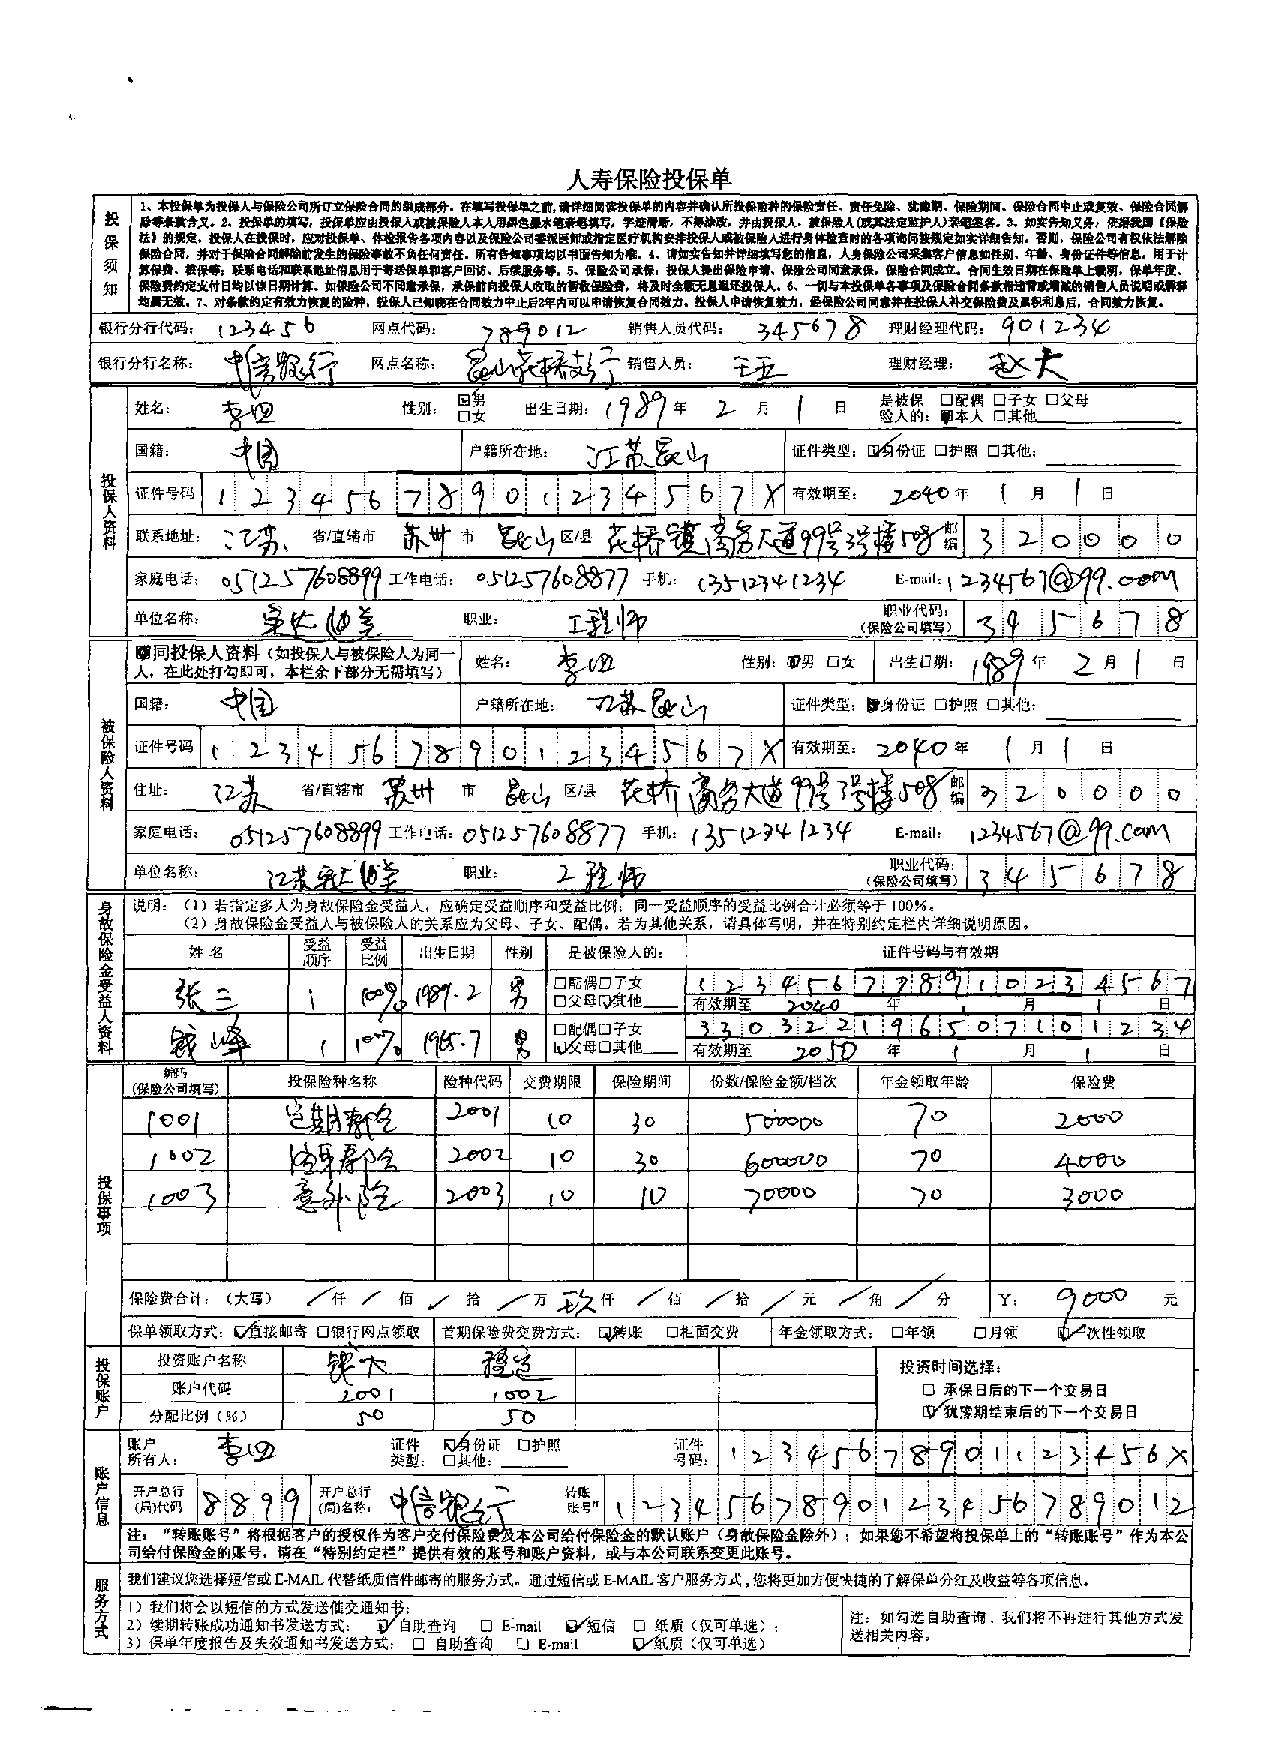 人寿保险投保单
投保须知
1、本投保单为投保人与保险公司所订立保险合同的组成部分。在填写投保单之前,请详细阅读投保单的内容并确认所投保险种的保险责任、责任免除、犹豫期、保险期间、保险合同中止或复效、保险合同解
除等条款含义。2、投保单的填写,投保单应由投保人或被保险人本人用黑色墨水笔亲笔填写,字迹清晰,不得涂改,并由投保人、被保险人(或其法定监护人)亲笔签名。3、如实告知义务,依据我国《保险
法》的规定,投保人在投保时,应对投保单、体检报告各项内容以及保险公司委派医师或指定医疗机构安排投保人或被保险人进行身体检查时的各项询问按规定如实详细告知。否则,保险公司有权依法解除
保险合同,并对于保险合同解除前发生的保险事故不负任何责任。所有告知事项均以书面告知为准。4、请如实告知并详细填写您的信息,人身保险公司采集客户信息如性别、年龄、身份证件等信息,用于计
算保费、核保等;联系电话和联系地址信息用于寄送保单和客户回访、后续服务等。5、保险公司承保:投保人提出保险申请、保险公司同意承保,保险合同成立。合同生效日期在保险单上载明,保单年度、
保险费约定支付日均以该日期计算。如保险公司不同意承保,承保前向投保人收取的暂收保险费,将及时全额无息退还投保人。6、一切与本投保单各事项及保险合同条款相违背或增减的销售人员说明或解释
均属无效。7、对条款约定有效力恢复的险种,投保人已知晓在合同效力中止后2年内可以申请恢复合同效力。投保人申请恢复效力,经保险公司同意并在投保人补交保险费及累积利息后,合同效力恢复。
银行分行代码: 123456 网点代码: 789012 销售人员代码: 345678 理财经理代码: 901234
银行分行名称: 中信银行 网点名称: 昆山花桥支行 销售人员: 王五 理财经理: 赵大
投保人资料
姓名: 李四 性别: ☑男 □女 出生日期: 1989 年 2 月 1 日 是被保险人的: □配偶 □子女 □父母 ☑本人 □其他
国籍: 中国 户籍所在地: 江苏昆山 证件类型: ☑身份证 □护照 □其他:
证件号码 12345678901234567X 有效期至: 2040 年 1 月 1 日
联系地址: 江苏 省/直辖市 苏州 市 昆山 区/县 花桥镇商务大道99号3号楼508 邮编 320000
家庭电话: 051257608899 工作电话: 051257608877 手机: 13512341234 E-mail: 1234567@99.com
单位名称: 职业: 工程师 职业代码: (保险公司填写) 345678
被保险人资料
☑同投保人资料(如投保人与被保险人为同一人,在此处打勾即可,本栏余下部分无需填写) 姓名: 李四 性别: ☑男 □女 出生日期: 1989 年 2 月 1 日
国籍: 中国 户籍所在地: 江苏昆山 证件类型: ☑身份证 □护照 □其他:
证件号码 12345678901234567X 有效期至: 2040 年 1 月 1 日
住址: 江苏 省/直辖市 苏州 市 昆山 区/县 花桥商务大道99号3号楼508 邮编 320000
家庭电话: 051257608899 工作电话: 051257608877 手机: 13512341234 E-mail: 1234567@99.com
单位名称: 职业: 工程师 职业代码: (保险公司填写) 345678
身故保险金受益人资料
说明:(1)若指定多人为身故保险金受益人,应确定受益顺序和受益比例;同一受益顺序的受益比例合计必须等于100%。
(2)身故保险金受益人与被保险人的关系应为父母、子女、配偶。若为其他关系,请具体写明,并在特别约定栏内详细说明原因。
姓名 受益顺序 受益比例 出生日期 性别 是被保险人的: 证件号码与有效期
张三 1 100% 1989.2 男 □配偶□子女 □父母☑其他 123456778910234567
有效期至 2040 年 1 月 1 日
钱峰 1 100% 1965.7 男 □配偶□子女 ☑父母□其他 330322196507101234
有效期至 2050 年 1 月 1 日
投保事项
编码(保险公司填写) 投保险种名称 险种代码 交费期限 保险期间 份数/保险金额/档次 年金领取年龄 保险费
1001 定期寿险 2001 10 30 500000 70 2000
1002 终身寿险 2002 10 30 600000 70 4000
1003 意外险 2003 10 10 70000 70 3000
保险费合计:(大写) / 仟 / 佰 / 拾 / 万 玖 仟 / 佰 / 拾 / 元 / 角 / 分 Y: 9000 元
保单领取方式: ☑直接邮寄 □银行网点领取 首期保险费交费方式: ☑转账 □柜面交费 年金领取方式: □年领 □月领 ☑一次性领取
投保账户
投资账户名称 稳定 投资时间选择:
账户代码 2001 1002 □ 承保日后的下一个交易日
分配比例(%) 50 50 ☑犹豫期结束后的下一个交易日
账户信息
账户所有人: 李四 证件类型: ☑身份证 □护照 □其他: 证件号码: 12345678901123456X
开户总行(局)代码 8899 开户总行(局)名称: 中信银行 转账账号 1234567890123456789012
注:“转账账号”将根据客户的授权作为客户交付保险费及本公司给付保险金的默认账户(身故保险金除外);如果您不希望将投保单上的“转账账号”作为本公
司给付保险金的账号,请在“特别约定栏”提供有效的账号和账户资料,或与本公司联系变更此账号。
服务方式
我们建议您选择短信或E-MAIL代替纸质信件邮寄的服务方式。通过短信或E-MAIL客户服务方式,您将更加方便快捷的了解保单分红及收益等各项信息。
1)我们将会以短信的方式发送催交通知书;
2)续期转账成功通知书发送方式: ☑自助查询 □ E-mail ☑短信 □ 纸质(仅可单选);
3)保单年度报告及失效通知书发送方式: □ 自助查询 □ E-mail ☑纸质(仅可单选)
注:如勾选自助查询,我们将不再进行其他方式发
送相关内容。